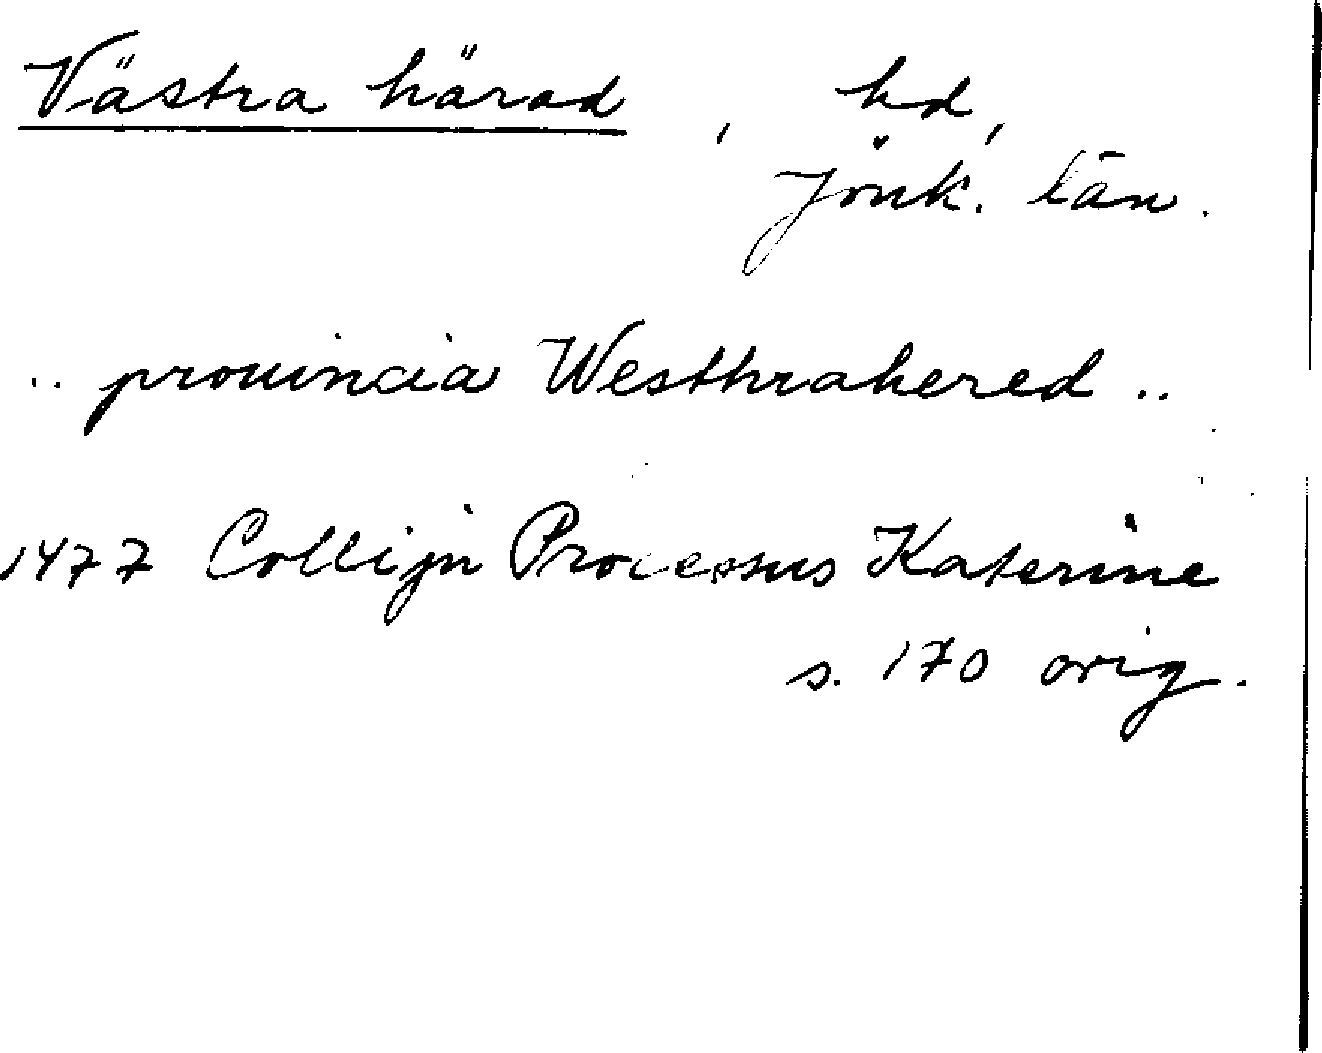 Västra härad, hd,
Jönk. län.
.. prouincia Westhrahered ..
1477 Collijn Processus Katerine
s. 170 orig.